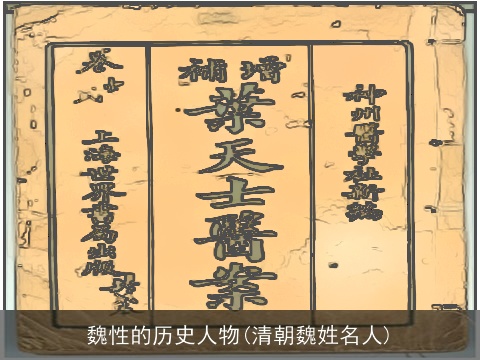 神州醫藥社新編
增補
葉天士醫案
卷
上海世界書局出版
魏性的历史人物(清朝魏姓名人)